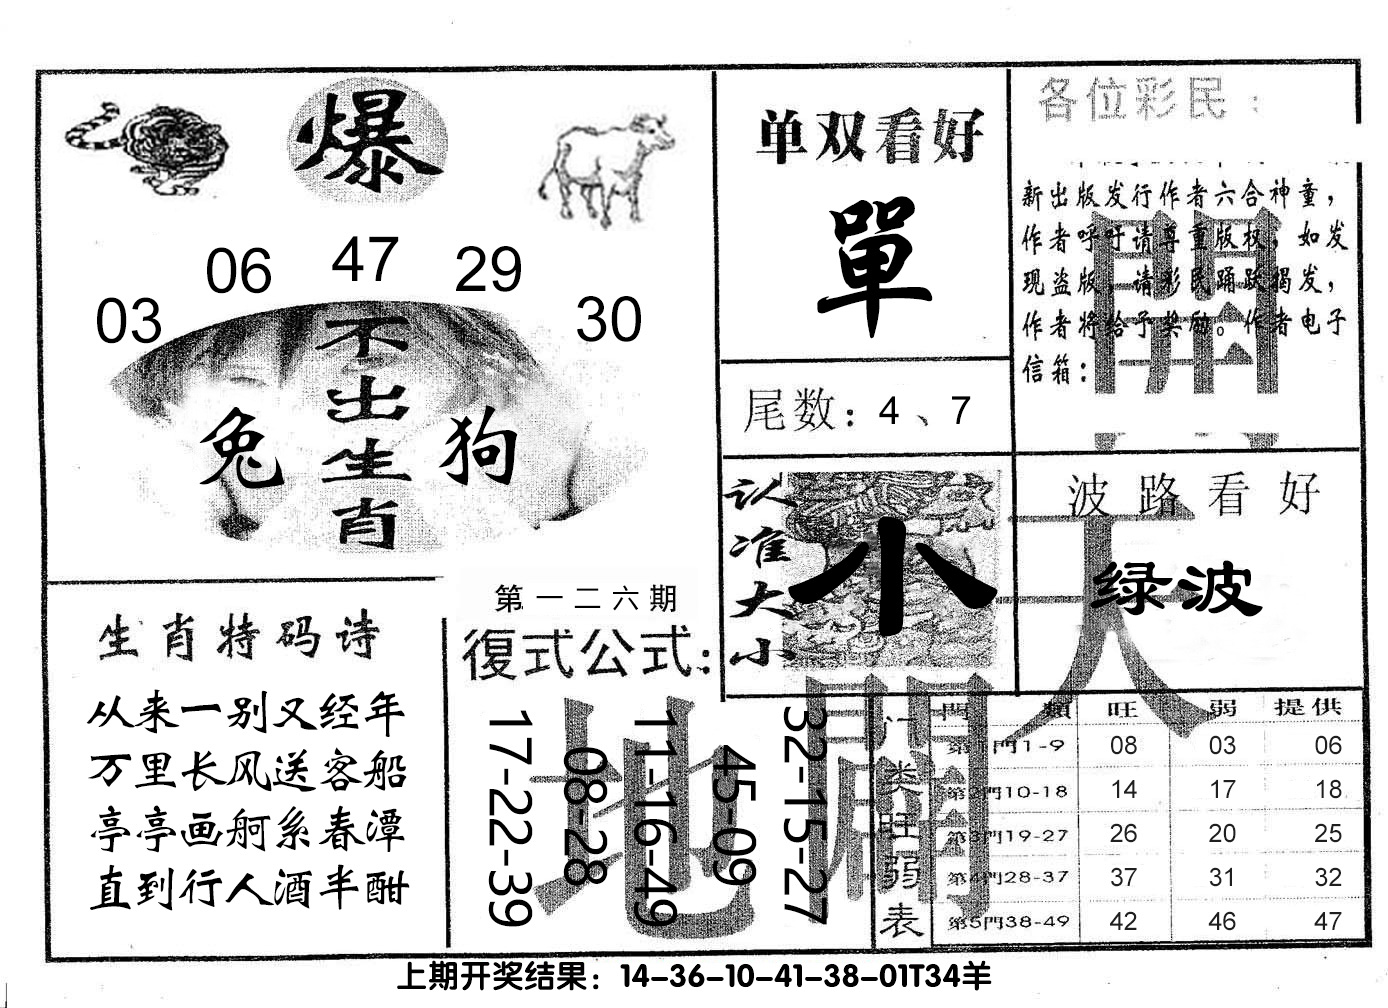 爆
03 06 47 29 30
不出生肖
兔 狗
单双看好
單
尾数：4、7
认准大小
小
各位彩民：
新出版发行作者六合神童，
作者呼吁请尊重版权，如发
现盗版，请彩民踊跃揭发，
作者将给予奖励。作者电子
信箱：
波路看好
绿波
天
開
地
生肖特码诗
从来一别又经年
万里长风送客船
亭亭画舸系春潭
直到行人酒半酣
第一二六期
復式公式：
17-22-39
08-28
11-16-49
45-09
32-15-27
门类旺弱表
門類 旺 弱 提供
第1門1-9 08 03 06
第2門10-18 14 17 18
第3門19-27 26 20 25
第4門28-37 37 31 32
第5門38-49 42 46 47
上期开奖结果：14-36-10-41-38-01T34羊